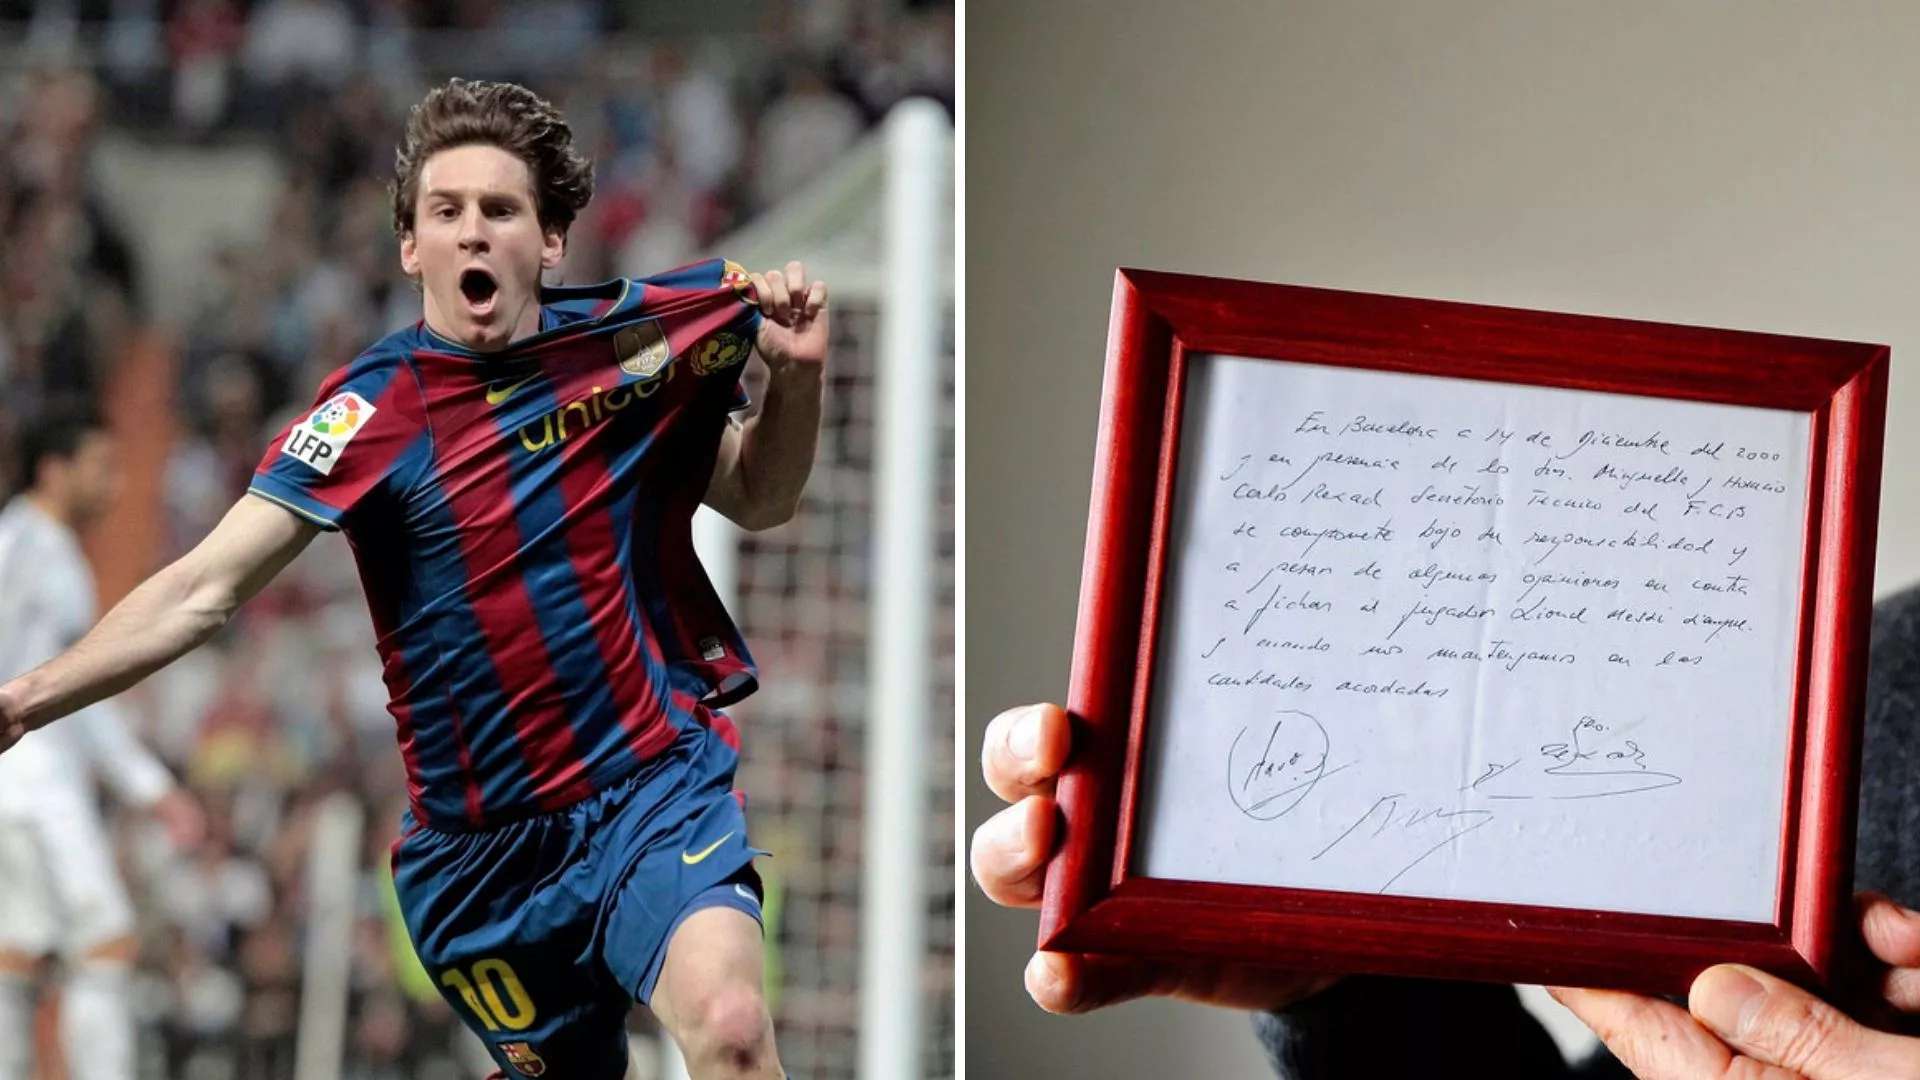 LFP
unicef
10
En Barcelona a 14 de Diciembre del 2000
y en presencia de los Srs. Minguella y Horacio
Carlo Rexach Secretario Tecnico del F.C.B
se compromete bajo su responsabilidad y
a pesar de algunas opiniones en contra
a fichar al jugador Lionel Messi siempre.
y cuando nos mantengamos en las
cantidades acordadas